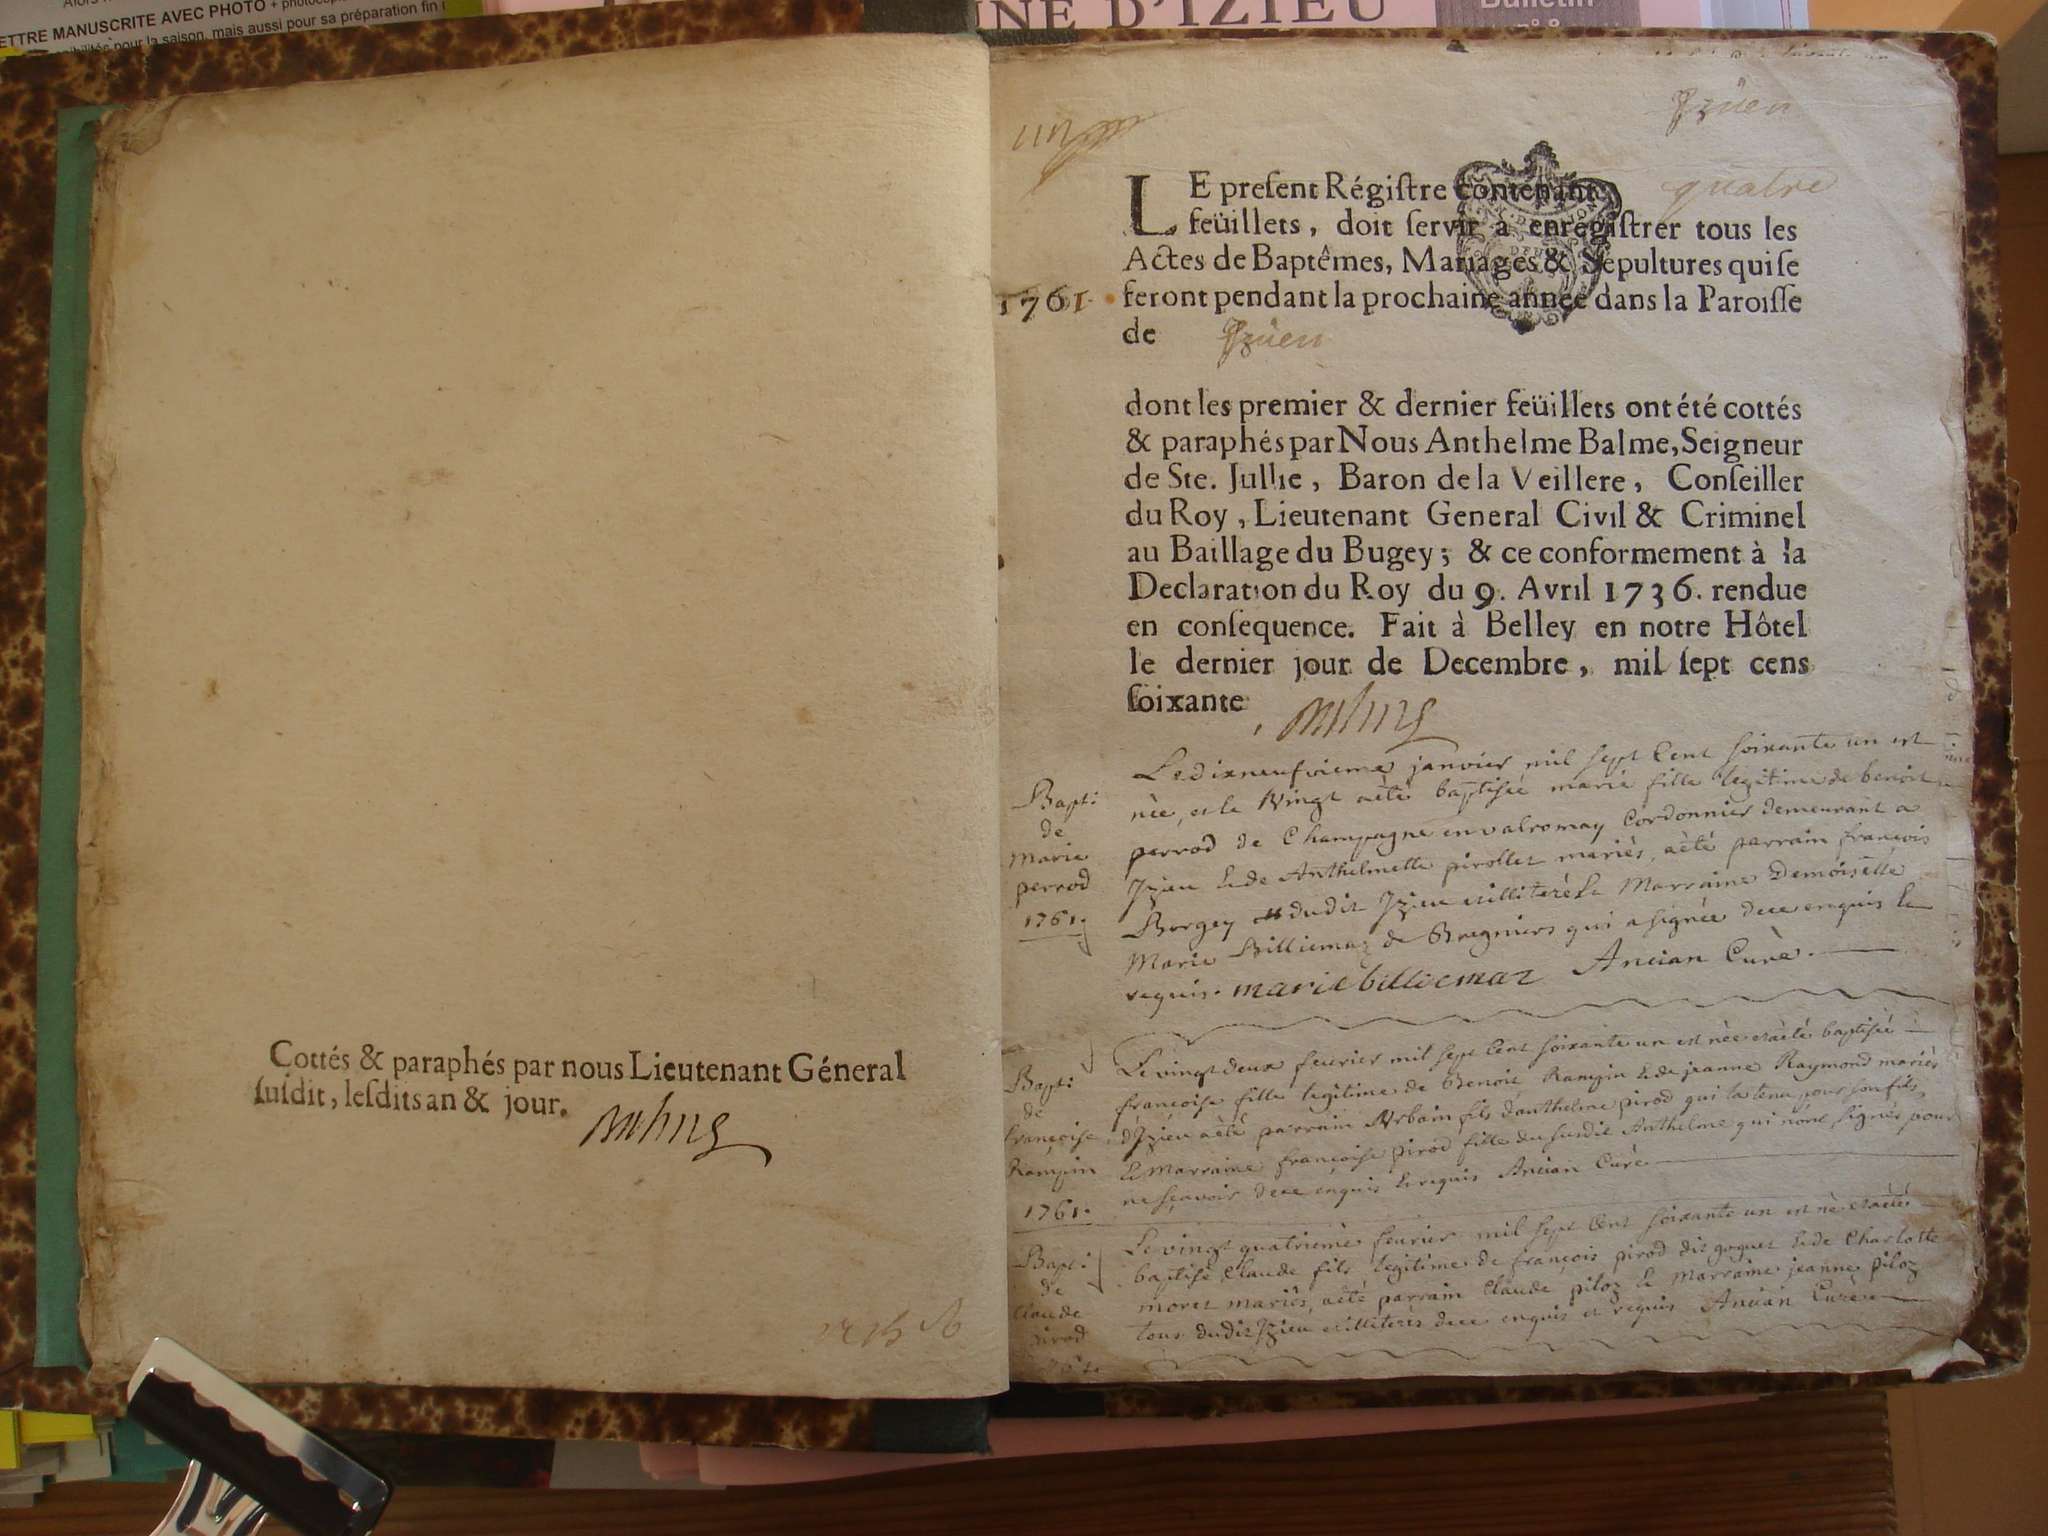 ETTRE MANUSCRITE AVEC PHOTO +
pour la saison, mais aussi pour sa préparation fin
NE D'IZIEU
Bulletin
Cottés & paraphés par nous Lieutenant Géneral
ſuſdit, leſdits an & jour.
Izieu
un
LE preſent Régiſtre contenant quatre
feüillets, doit ſervir à enregiſtrer tous les
Actes de Baptêmes, Mariages & Sepultures qui ſe
1761. feront pendant la prochaine année dans la Paroiſſe
de Izieu
dont les premier & dernier feüillets ont été cottés
& paraphés par Nous Anthelme Balme, Seigneur
de Ste. Jullie, Baron de la Veillere, Conſeiller
du Roy, Lieutenant General Civil & Criminel
au Baillage du Bugey; & ce conformement à la
Declaration du Roy du 9. Avril 1736. rendue
en conſequence. Fait à Belley en notre Hôtel
le dernier jour de Decembre, mil ſept cens
ſoixante
Bapt:
de
Marie
perrod
1761.
Le dixneufvieme janvier mil sept Cent soixante un est
née, et le Vingt a été baptisée marie fille legitime de benoit
perrod de Champagne en valromay Cordonnier demeurant a
Izieu & de Anthelmette pirollet mariés, a été parrain françois
Borgey dudit Izieu illiteré & la Marraine Demoiselle
Marie Billiemaz de Bregniers qui a signée de ce enquis &
requis. marie billiemaz Ancian Curé.
Bapt:
de
françoise
Rampin
1761.
Le vingt deux fevrier mil sept Cent soixante un est née et a été baptisée
françoise fille legitime de Benoit Rampin & de jeanne Raymond mariés
d'Izieu a été parrain Urbain fils d'anthelme pirod qui l'a tenu pour son fils,
& Marraine françoise pirod fille du susdit Anthelme qui n'ont signés pour
ne sçavoir de ce enquis & requis Ancian Curé
Bapt:
de
Claude
pirod
Le vingt quatrieme fevrier mil sept Cent soixante un est né et a été
baptisé Claude fils legitime de françois pirod dit goguet & de Charlotte
moret mariés, a été parrain Claude piloz & Marraine jeanne piloz
tous dudit Izieu et illiterés de ce enquis et requis Ancian Curé